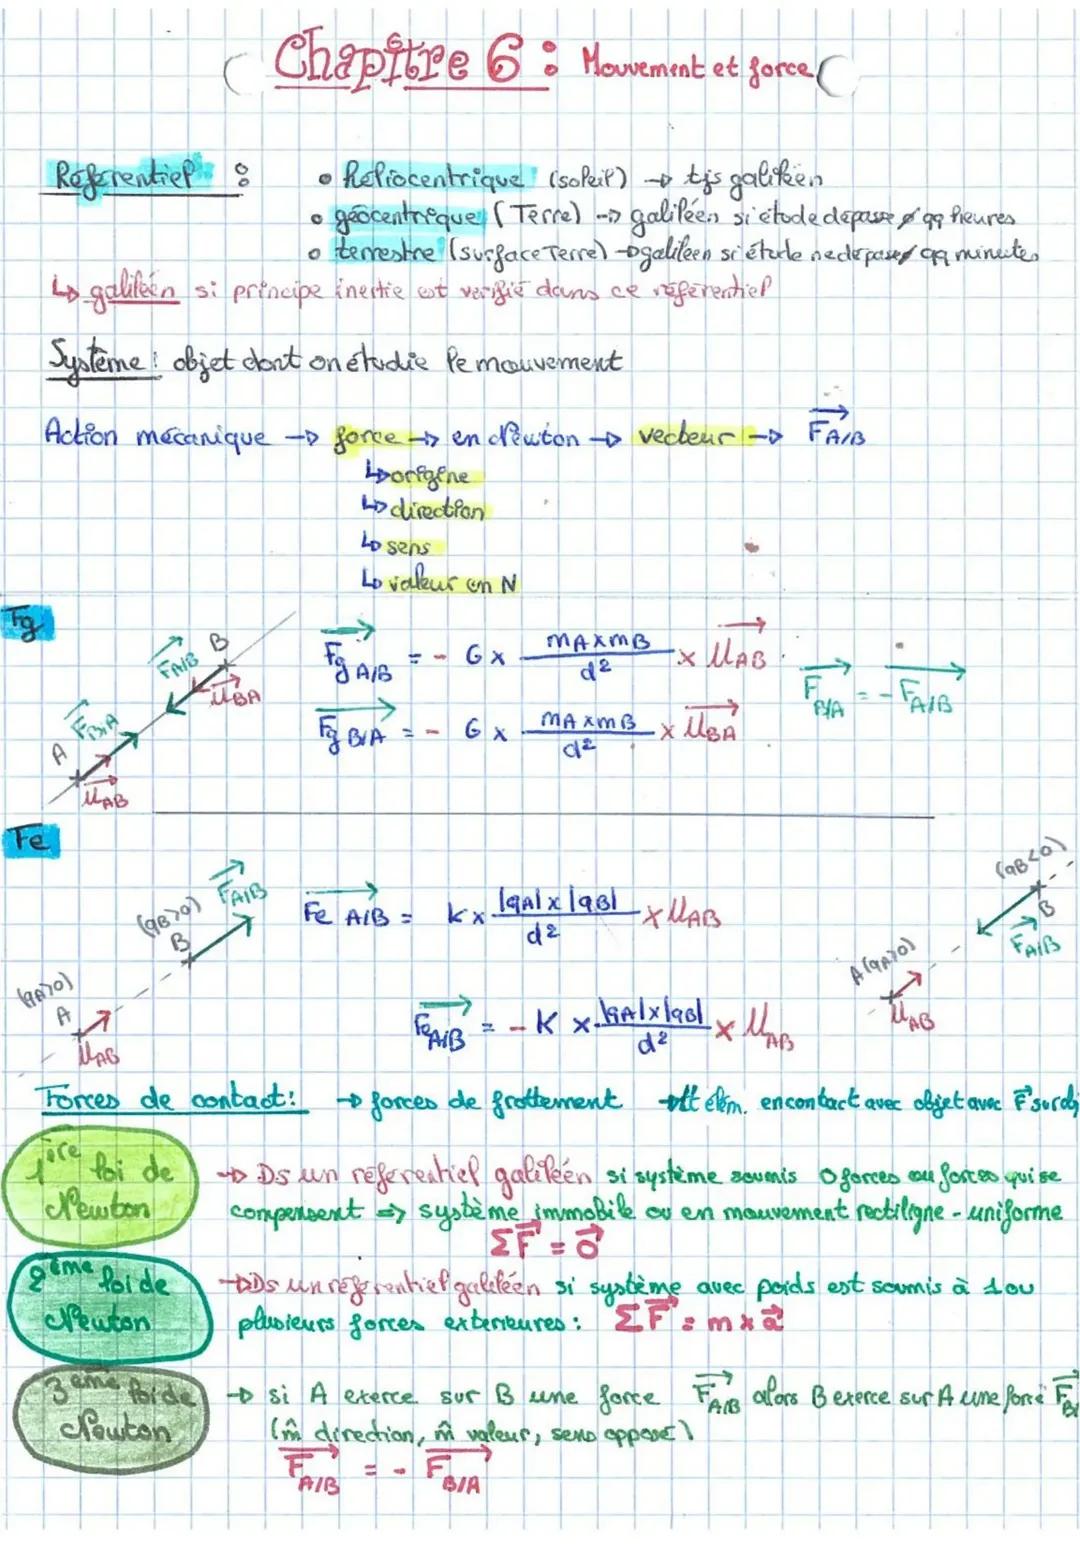 Chapitre 6 : Mouvement et force
Référentiel :
• héliocentrique (soleil) → tjs galiléen
• géocentrique (Terre) → galiléen si étude dépasse ø qq heures
• terrestre (surface Terre) → galiléen si étude ne dépasse ø qq minutes
↳ galiléen si principe inertie est vérifié dans ce référentiel
Système : objet dont on étudie le mouvement
Action mécanique → force → en Newton → vecteur → F⃗A/B
↳ origine
↳ direction
↳ sens
↳ valeur en N
Fg
A
B
F⃗A/B
F⃗B/A
u⃗BA
u⃗AB
F⃗g A/B = - G × mA×mB / d² × u⃗AB
F⃗g B/A = - G × mA×mB / d² × u⃗BA
F⃗B/A = - F⃗A/B
Fe
(qA>0)
A
u⃗AB
(qB>0)
B
F⃗A/B
F⃗e A/B = k × |qA| × |qB| / d² × u⃗AB
(qB<0)
B
F⃗A/B
A (qA>0)
u⃗AB
F⃗e A/B = - K × |qA| × |qB| / d² × u⃗AB
Forces de contact : → forces de frottement → tt élém. en contact avec objet avec F⃗ sur
1ère loi de Newton
→ Ds un référentiel galiléen si système soumis 0 forces ou forces qui se
compensent => système immobile ou en mouvement rectiligne - uniforme
ΣF⃗ = 0⃗
2ème loi de Newton
→ Ds un référentiel galiléen si système avec poids est soumis à 1 ou
plusieurs forces exterieures : ΣF⃗ = m × a⃗
3ème loi de Newton
→ si A exerce sur B une force F⃗A/B alors B exerce sur A une force F⃗B/
(m̂ direction, m̂ valeur, sens opposé)
F⃗A/B = - F⃗B/A